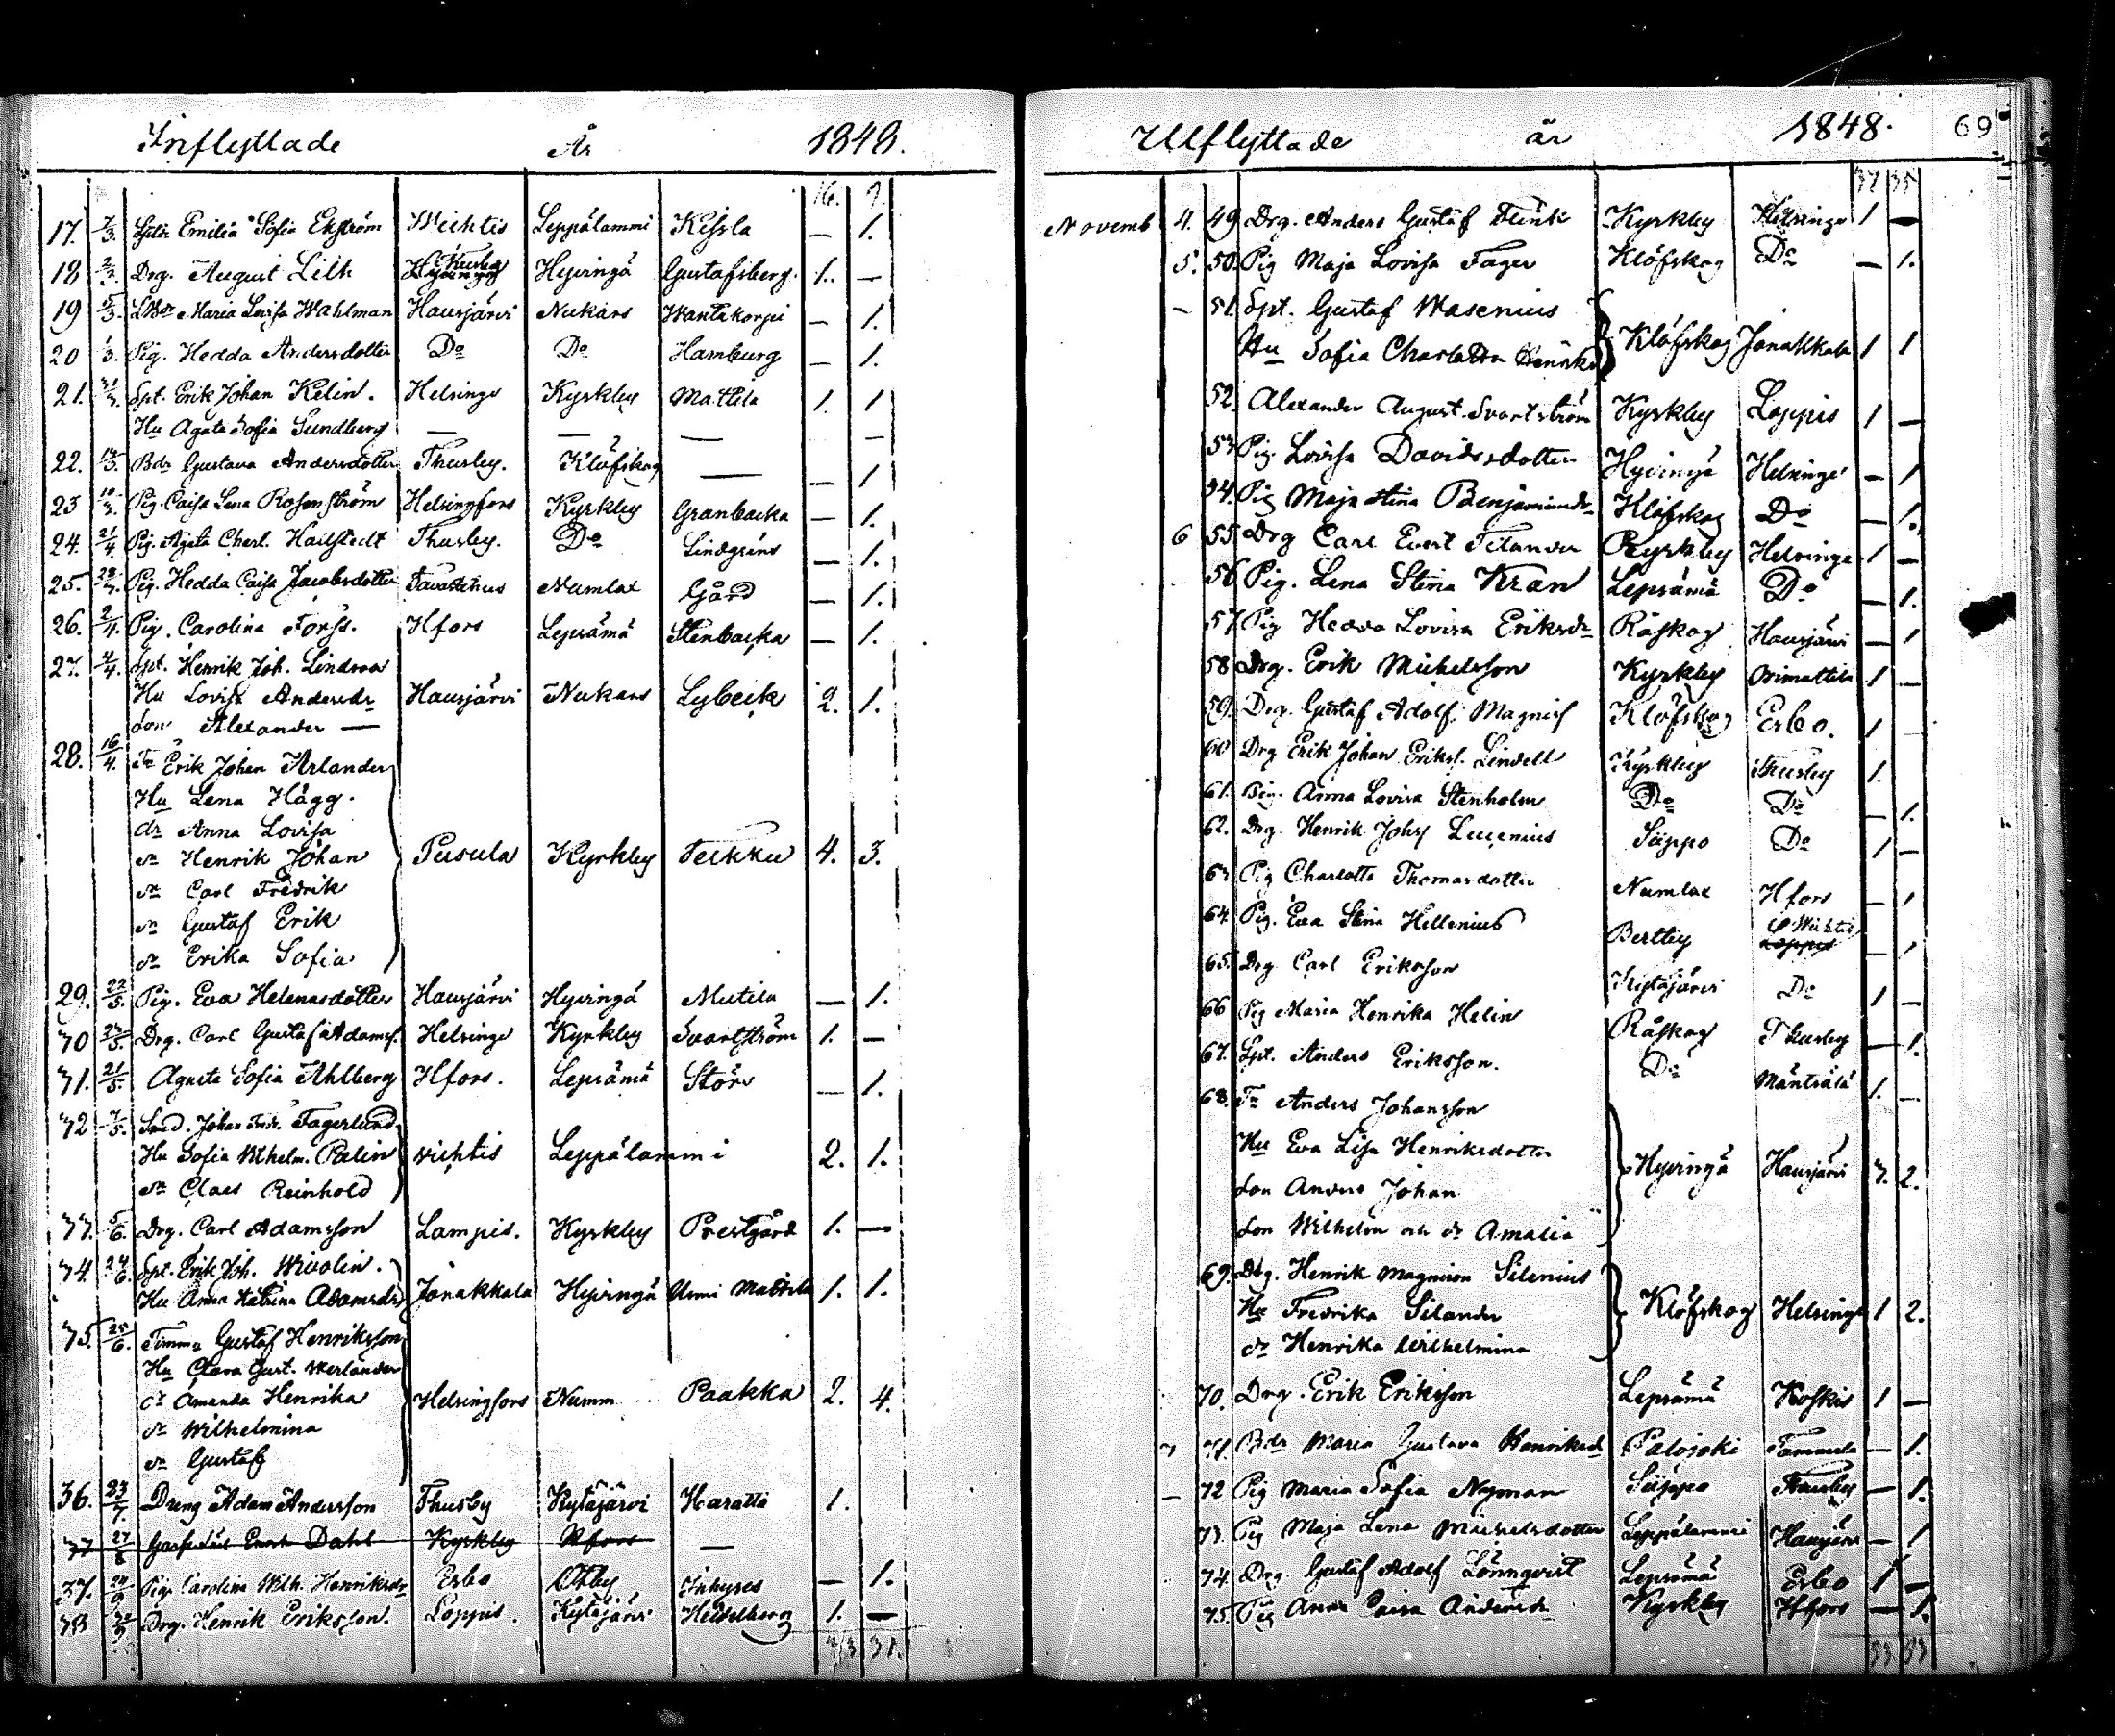 Inflyttade År 1848.
16. 9.
17. 7/3. Emilia Sofia Ekström Wichtis Leppälammi Kessla — 1.
18 2/3. Drg. August Lilh Thusby Hyvingä Gustafsberg. 1. —
19 5/3. Maria Lovisa Wahlman Hausjärvi Nukars Wantakorpi — 1.
20 Pig. Hedda Andersdotter Do Do Hamburg — 1.
21. Spt. Erik Johan Kelin. Helsinge Kyrkby Mattila 1. 1
Hu Agata Sofia Sundberg — — — —
22. Bdr Gustava Andersdotter Thusby. Klöfskog — — 1
23 Pig. Caisa Lena Rosenström Helsingfors Kyrkby Granbacka — 1.
24. 21/4 Pig. Agata Charl. Hallstedt Thusby. Do Lindgrens — 1.
25. Pig. Hedda Caisa Jacobsdotter Tavastehus Numlax Gård — 1.
26. 2/4. Pig. Carolina Forss. Hfors Lepsämä Stenbacka — 1.
27. 4/4. Spt. Henrik Joh. Lindroos
Hu Lovisa Andersdr Hausjärvi Nukars Lybeck 2. 1.
Son Alexander —
28. 16/4. Erik Johan Arlander
Hu Lena Hägg.
dr Anna Lovisa
sn Henrik Johan Pusula Kyrkby Teikku 4. 3.
sn Carl Fredrik
sn Gustaf Erik
dr Erika Sofia
29. 22/5. Pig. Eva Helenasdotter Hausjärvi Hyvingä Mutila — 1.
30 Drg. Carl Gustaf Adams. Helsinge Kyrkby Svartström 1. —
31. 21/5. Agneta Sofia Ahlberg Hfors. Lepsämä Störs — 1.
32 7/5. Smed. Johan Fredr. Fagerlund
Hu Sofia Wilhelm. Palin Vichtis Leppälammi 2. 1.
sn Claes Reinhold
33. 5/6. Drg. Carl Adamsson Lampis. Kyrkby Prestgård 1. —
34. 24/6. Spt. Erik Joh. Wivolin.
Hu Anna Katrina Adamsdr Janakkala Hyvingä Uusi Mattila 1. 1.
35. 25/6. Timmn Gustaf Henriksson
Hu Clara Gust. Werlander
dr Amanda Henrika Helsingfors Numm Paakka 2. 4.
dr Wilhelmina
sn Gustaf
36. 23/7. Dreng Adam Andersson Thusby Kytäjärvi Haratti 1.
37 27/8 Dahl Kyrkby Hfors —
37. Pig. Carolina Wilh. Henriksdr Esbo Otby Inhyses — 1.
38 Drg. Henrik Eriksson. Loppis. Kytäjärvi Heidelberg 1. —
Utflyttade år 1848. 69
37 35
Novemb 4. 49 Drg. Anders Gustaf Flink Kyrkby Helsinge 1 —
5. 50. Pig Maja Lovisa Fager Klöfskog Do — 1.
— 51. Spt. Gustaf Wasenius
Hu Sofia Charlotta Klöfskog Janakkala 1 1
52. Alexander August Svartström Kyrkby Loppis 1 —
53 Pig. Lovisa Davidsdotter Hyvingä Helsinge — 1
54. Pig Maja Stina Benjaminsdr Klöfskog Do — 1.
6 55 Drg Carl Evert Kyrkby Helsinge 1 —
56 Pig. Lena Stina Kran Lepsämä Do — 1.
57. Pig Hedda Lovisa Eriksdr Råskog Hausjärvi — 1
58 Drg. Erik Michelsson Kyrkby Orimattila 1 —
59. Drg. Gustaf Adolf Magniss Klöfskog Esbo. 1 —
60 Drg Erik Johan Eriks. Lindell Kyrkby Thusby 1.
61. Pig. Anna Lovisa Stenholm Do Do — 1.
62. Drg. Henrik Johs Lucenius Säppo Do 1 —
63 Pig Charlotta Thomasdotter Numlax Hfors — 1
64. Pig. Eva Stina Hellenius Bertby Wichtis Loppis — 1
65. Drg Carl Eriksson Kytäjärvi Do 1 —
66 Pig Maria Henrika Helin Råskog Thusby — 1.
67. Spt. Anders Eriksson. Do Mäntsälä 1. —
68. Anders Johansson
Hu Eva Lisa Henriksdotter
Son Anders Johan Hyvingä Hausjärvi 3. 2.
Son Wilhelm och dr Amalia
69. Drg. Henrik Magnison Silenius
Hu Fredrika Silander Klöfskog Helsinge 1 2.
dr Henrika Wilhelmina
70. Drg. Erik Eriksson Lepsämä Koskis 1 —
7 71. Bdr Maria Gustava Henriksd Palojoki Tammela — 1.
— 72 Pig Maria Sofia Nyman Säppo Thusby — 1.
73. Pig Maja Lena Michelsdotter Leppälammi Hausjärvi — 1
74. Drg Gustaf Adolf Lönnqvist Lepsämä Esbo 1 —
75. Pig Anna Caisa Andersdr Kyrkby Hfors — 1.
53 53